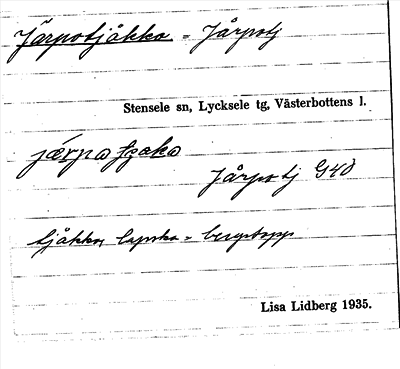 Järpotjåkka = Jårpotj
Stensele sn, Lycksele tg, Västerbottens l.
Jårpotj G40
tjåkka, lapska = bergstopp
Lisa Lidberg 1935.